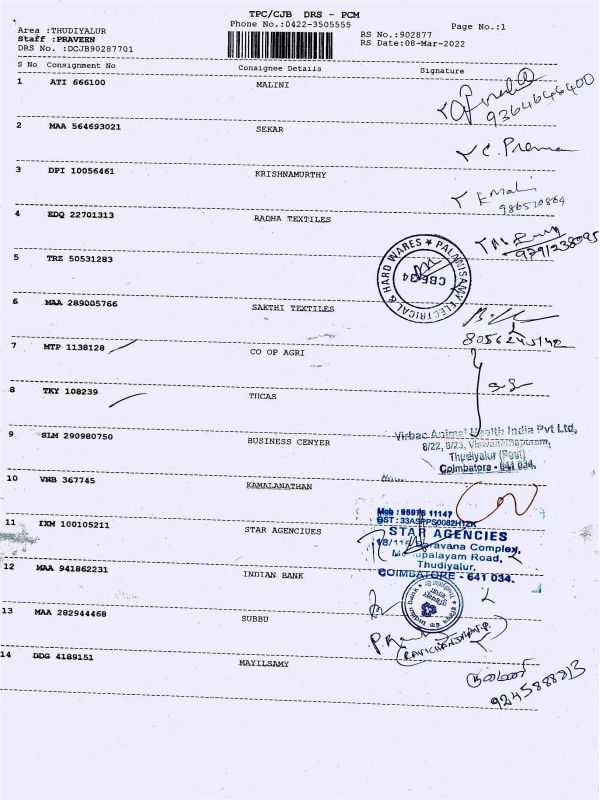 TPC/CJB DRS - PCM
Phone No.:0422-3505555 Page No.:1
Area :THUDIYALUR
Staff :PRAVEEN RS No.:902877
DRS No. :DCJB90287701 RS Date:08-Mar-2022
S No Consignment No Consignee Details Signature
1 ATI 666100 MALINI
9364646400
2 MAA 564693021 SEKAR
C. Prema
3 DPI 10056461 KRISHNAMURTHY
4 EDQ 22701313 RADHA TEXTILES
PALANISAMY ELECTRICAL & HARD WARES
CBE-34
5 TRZ 50531283
6 MAA 289005766 SAKTHI TEXTILES
7 MTP 1138128 CO OP AGRI
8 TKY 108239 TUCAS
9 SLM 290980750 BUSINESS CENYER
Virbac Animal Health India Pvt Ltd,
8/22, 8/23, Viswanathapuram,
Thudiyalur (Post)
Coimbatore - 641 034.
10 VNB 367745 KAMALANATHAN
Mob : 95 11147
GST :
11 IXM 100105211 STAR AGENCIUES
STAR AGENCIES
Saravana Complex,
Road,
Thudiyalur,
COIMBATORE - 641 034.
12 MAA 941862231 INDIAN BANK
13 MAA 282944468 SUBBU
RAVICHANDRAN.P
14 DDG 4189151 MAYILSAMY
9245888813